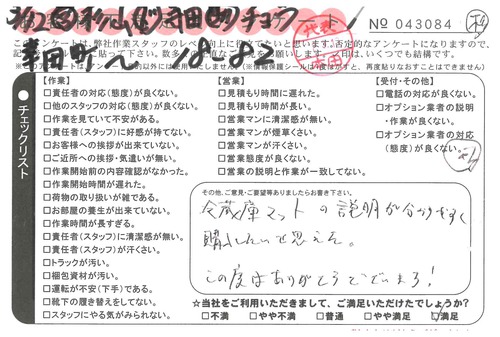 No 043084
このアンケートは、弊社作業スタッフのレベル向上に役立てたいと思います。否定的なアンケートになりますので、
代表
本田
チェックリスト
【作業】
□責任者の対応(態度)が良くない。
□他のスタッフの対応(態度)が良くない。
□作業を見ていて不安がある。
□責任者(スタッフ)に好感が持てない。
□お客様への挨拶が出来ていない。
□ご近所への挨拶・気遣いが無い。
□作業開始前の内容確認がなかった。
□作業開始時間が遅れた。
□荷物の取り扱いが雑である。
□お部屋の養生が出来ていない。
□作業時間が長すぎる。
□責任者(スタッフ)に清潔感が無い。
□責任者(スタッフ)が汗くさい。
□トラックが汚い。
□梱包資材が汚い。
□運転が不安(下手)である。
□靴下の履き替えをしてない。
□スタッフにやる気がみられない。
【営業】
□見積もり時間に遅れた。
□見積もり時間が長い。
□営業マンに清潔感が無い。
□営業マンが煙草くさい。
□営業マンが汗くさい。
□営業態度が良くない。
□営業の説明と作業が一致してない。
【受付・その他】
□電話の対応が良くない。
□オプション業者の説明
・作業が良くない。
□オプション業者の対応
(態度)が良くない。
その他、ご意見・ご要望等ありましたらお書き下さい。
冷蔵庫マットの説明が分かりやすく
購入したいと思えた。
この度はありがとうございます!
☆当社をご利用いただきまして、ご満足いただけたでしょうか?
□不満 □やや不満 □普通 □やや満足 ☑満足